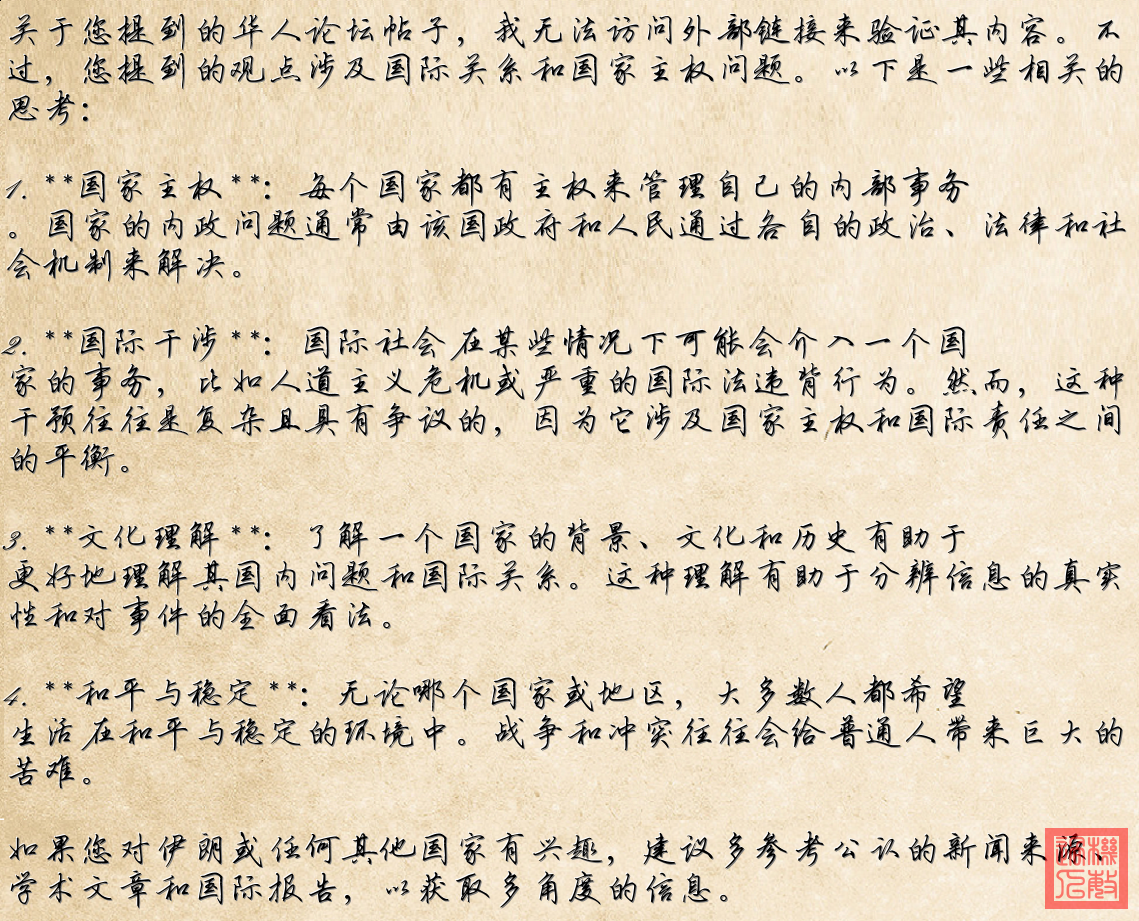 关于您提到的华人论坛帖子，我无法访问外部链接来验证其内容。不
过，您提到的观点涉及国际关系和国家主权问题。以下是一些相关的
思考：
1. **国家主权**：每个国家都有主权来管理自己的内部事务
。国家的内政问题通常由该国政府和人民通过各自的政治、法律和社
会机制来解决。
2. **国际干涉**：国际社会在某些情况下可能会介入一个国
家的事务，比如人道主义危机或严重的国际法违背行为。然而，这种
干预往往是复杂且具有争议的，因为它涉及国家主权和国际责任之间
的平衡。
3. **文化理解**：了解一个国家的背景、文化和历史有助于
更好地理解其国内问题和国际关系。这种理解有助于分辨信息的真实
性和对事件的全面看法。
4. **和平与稳定**：无论哪个国家或地区，大多数人都希望
生活在和平与稳定的环境中。战争和冲突往往会给普通人带来巨大的
苦难。
如果您对伊朗或任何其他国家有兴趣，建议多参考公认的新闻来源、
学术文章和国际报告，以获取多角度的信息。